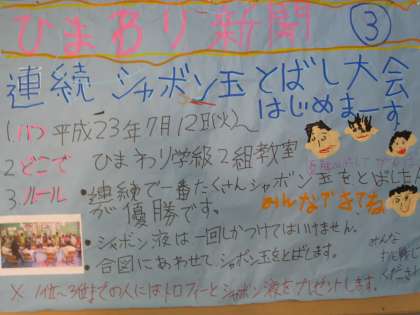 ひまわり新聞 ③
連続シャボン玉とばし大会
はじめまーす
1.いつ 平成23年7月12日(火)〜
2.どこで ひまわり学級2組教室
3.ルール ・連続で一番たくさんシャボン玉をとばした人
が優勝です。
みんなできてね
・シャボン液は一回しかつけてはいけません。
・合図にあわせてシャボン玉をとばします。
みんな
ください
※ 1位〜3位までの人にはトロフィーとシャボン液をプレゼントします。